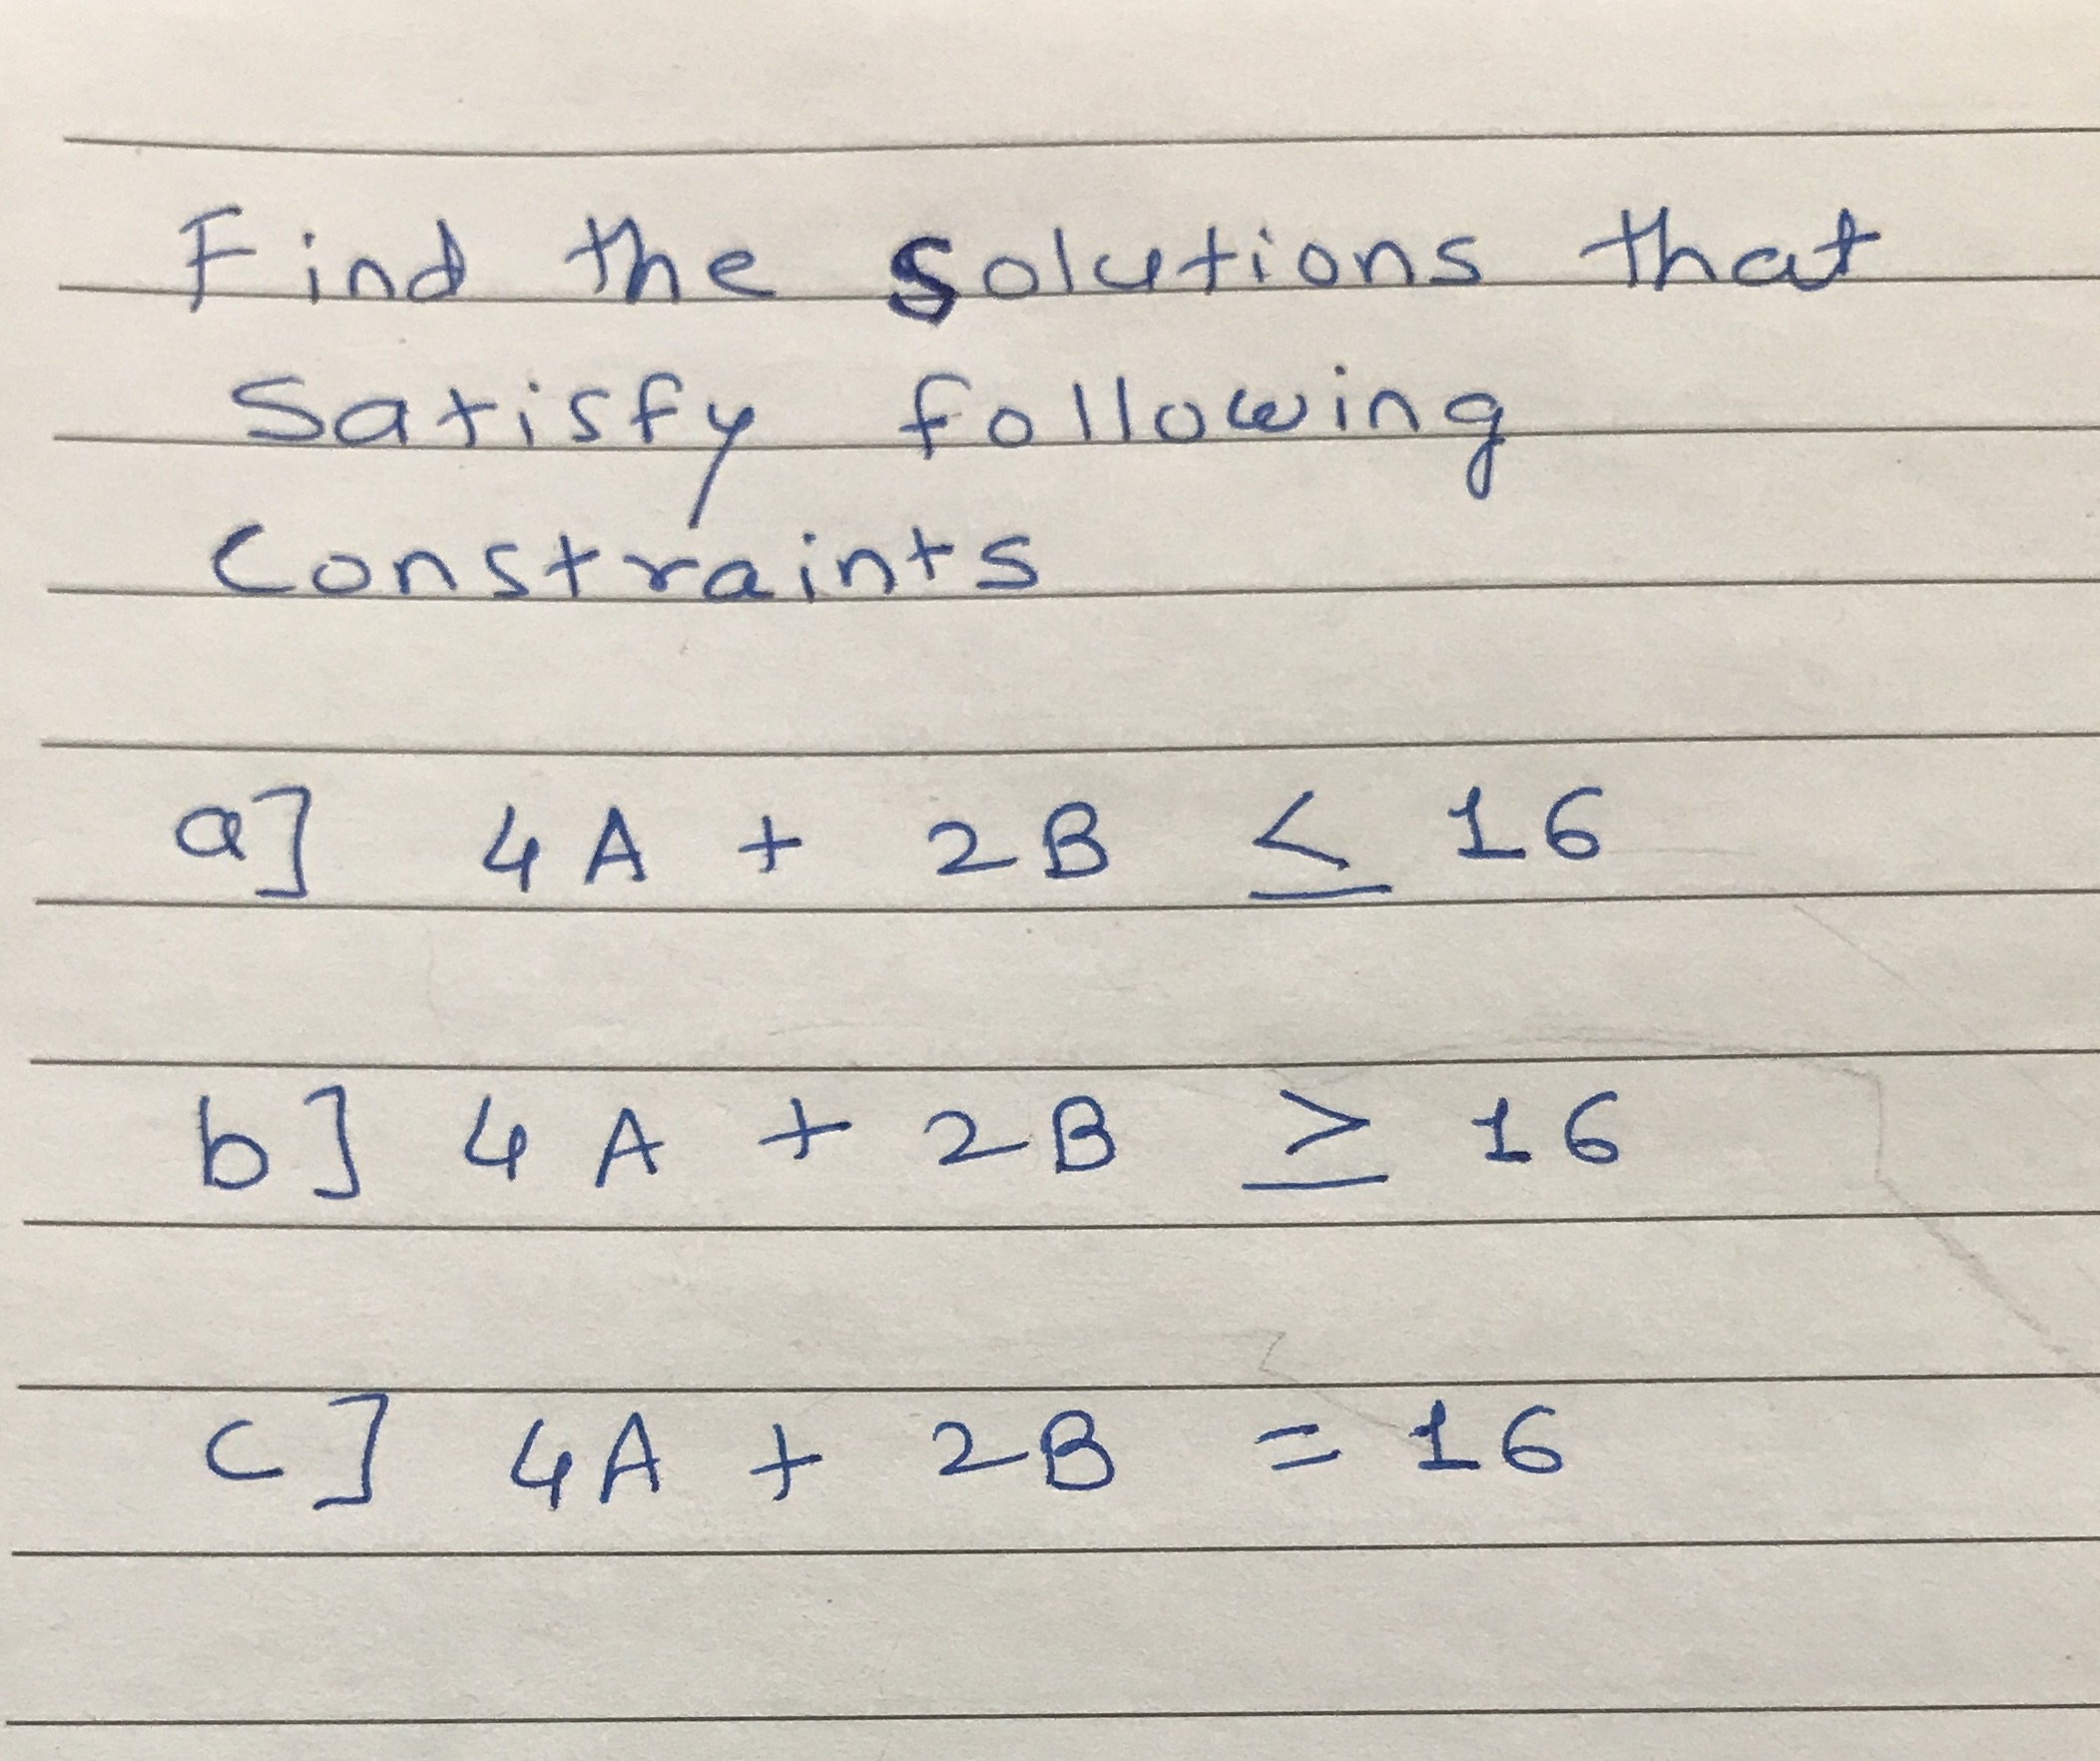 Find the solutions that
Satisfy following
Constraints
a] 4A + 2B ≤ 16
b] 4A + 2B ≥ 16
c] 4A + 2B = 16